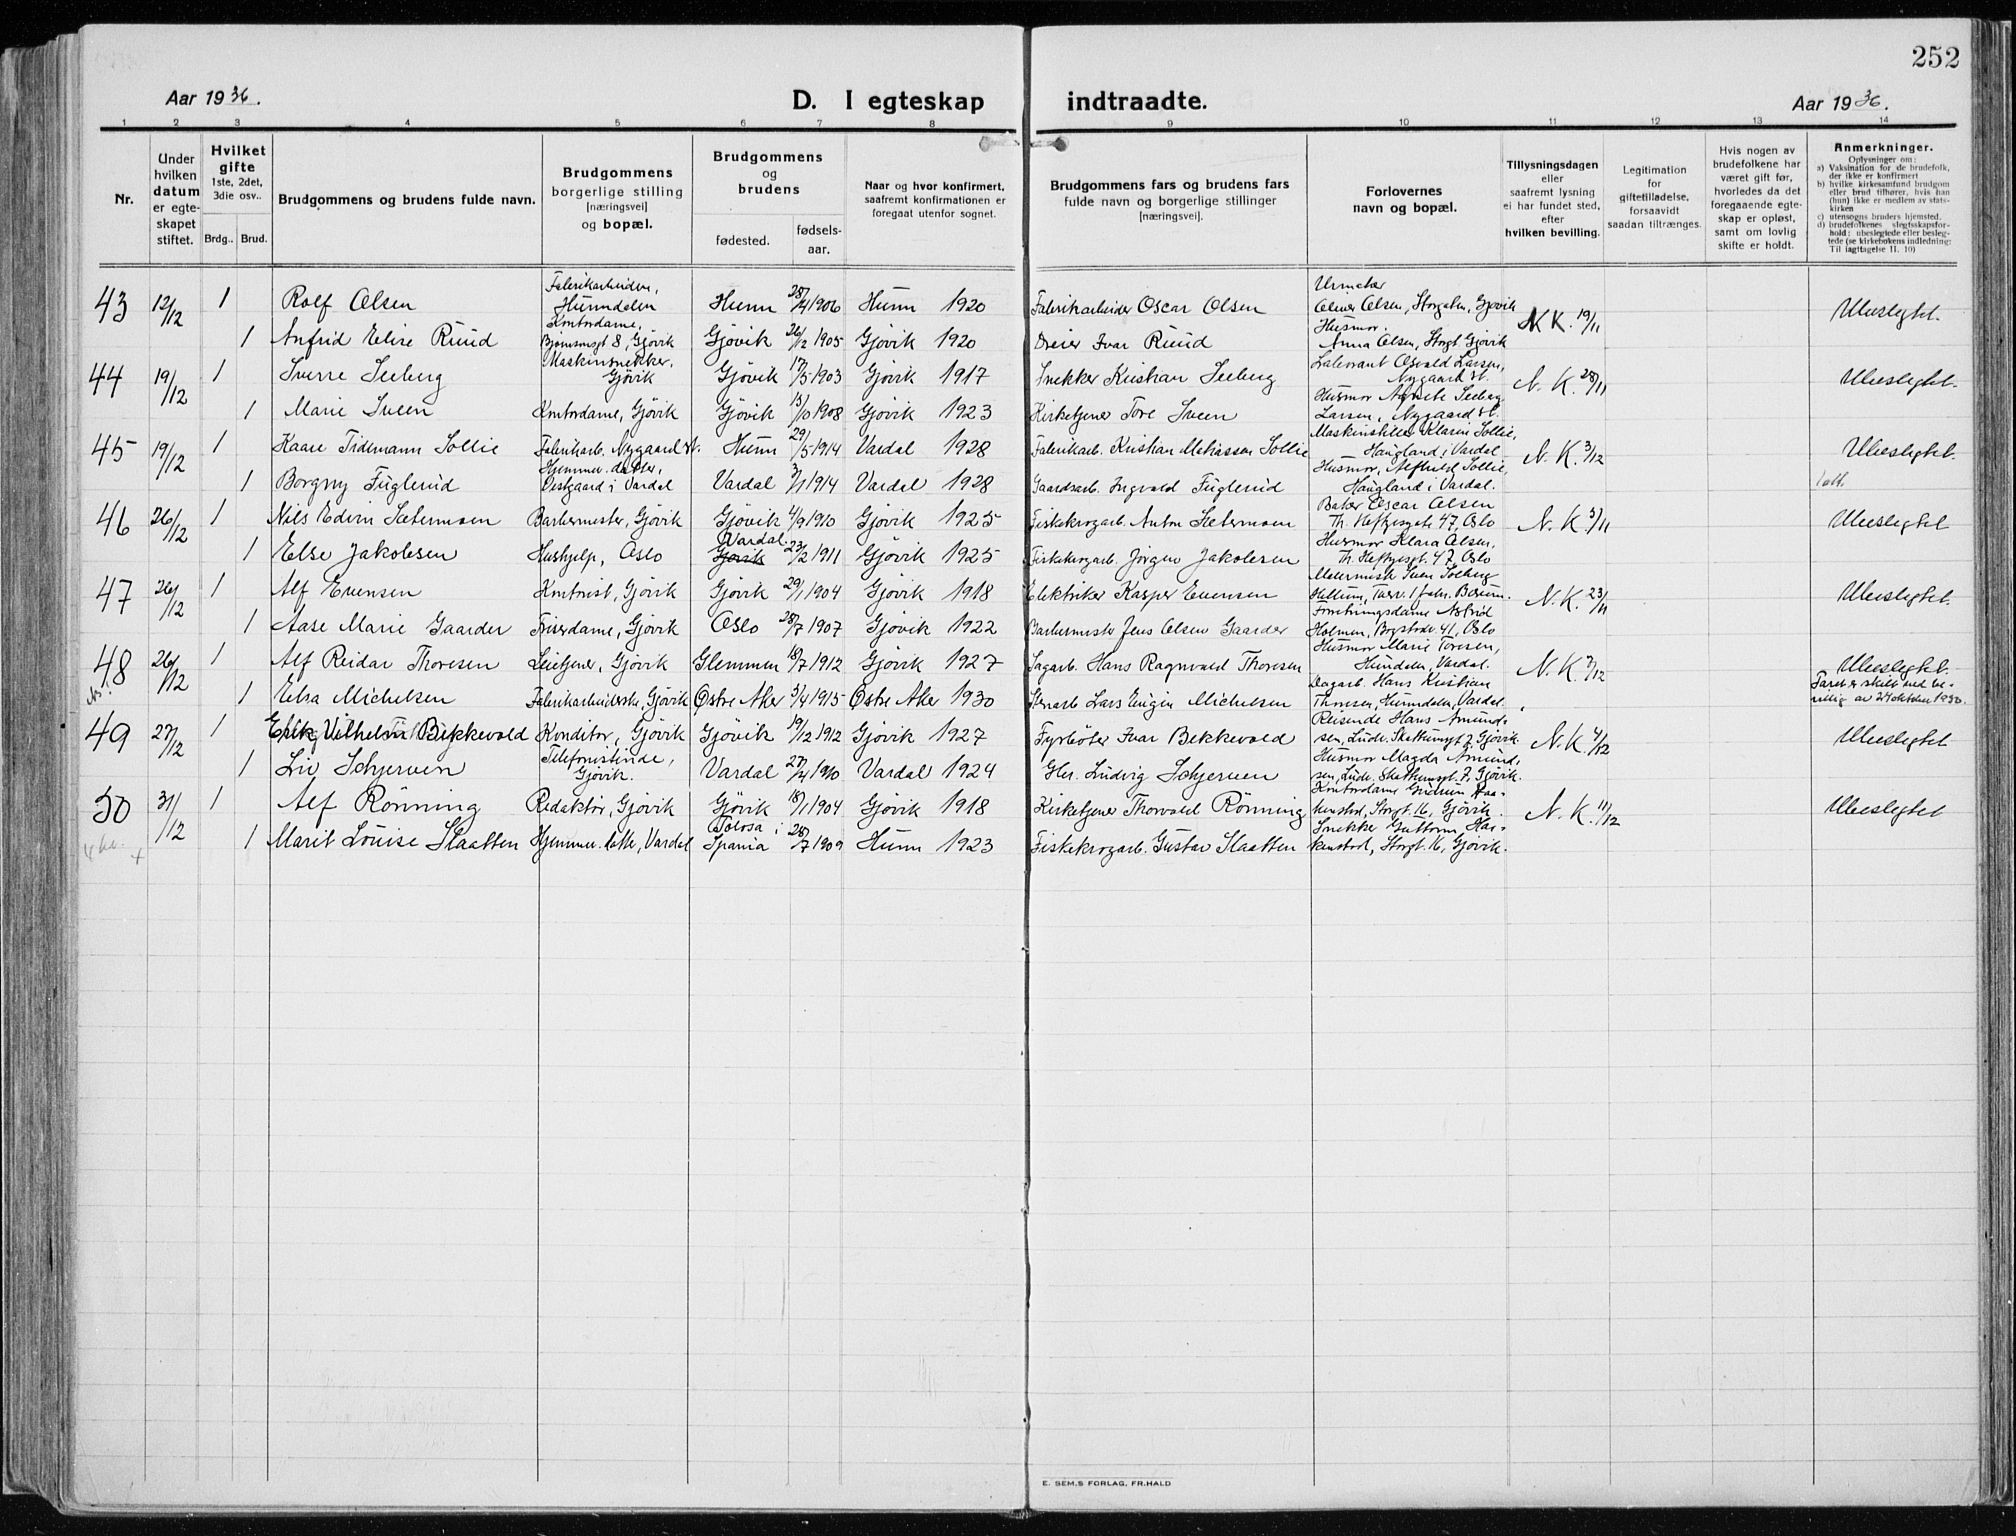 252
Aar 1936.
D. I egteskap indtraadte.
Aar 1936.
1 2 3 4 5 6 7 8 9 10 11 12 13 14
Nr.
Under hvilken datum er egteskapet stiftet.
Hvilket gifte 1ste, 2det, 3die osv..
Brdg.. Brud.
Brudgommens og brudens fulde navn.
Brudgommens borgerlige stilling [næringsvei] og bopæl.
Brudgommens og brudens
fødested. fødsels-aar.
Naar og hvor konfirmert, saafremt konfirmationen er foregaat utenfor sognet.
Brudgommens fars og brudens fars fulde navn og borgerlige stillinger [næringsvei].
Forlovernes navn og bopæl.
Tillysningsdagen eller saafremt lysning ei har fundet sted, efter hvilken bevilling.
Legitimation for giftetilladelse, forsaavidt saadan tiltrænges.
Hvis nogen av brudefolkene har været gift før, hvorledes da det foregaaende egteskap er opløst, samt om lovlig skifte er holdt.
Anmerkninger.
Oplysninger om:
a) Vaksination for de brudefolk, der ikke er konfirmert
b) hvilke kirkesamfund brudgom eller brud tilhører, hvis han (hun) ikke er medlem av statskirken
c) utensogns bruders hjemsted.
d) brudefolkenes slegtsskapsforhold: ubeslegtede eller beslegtede (se kirkebokens indledning: Til iagttagelse II. 10)
43 12/12 1 Rolf Olsen Fabrikarbeider, Hunndalen Hunn 28/4 1906 Hunn 1920 Fabrikarbeider Oscar Olsen Urmaker Olsen, Storgaten, Gjøvik N.K. 19/11 Ubeslegtet.
1 Anfrid Elise Ruud Kontordame, Gjøvik Gjøvik 26/12 1905 Gjøvik 1920 Dreier Ivar Ruud Husmor Anna Olsen, Storgt. Gjøvik
44 19/12 1 Sverre Seeberg Maskinsnekker, Gjøvik Gjøvik 17/5 1903 Gjøvik 1917 Snekker Kristian Seeberg Osvald Larsen, Nygaard st. N.K. 28/11 Ubeslegtet.
1 Marie Sveen Kontordame, Gjøvik Gjøvik 13/10 1908 Gjøvik 1923 Kirketjener Tore Sveen Husmor Agnete Seeberg Larsen, Nygaard st.
45 19/12 1 Kaare Tidemann Sollie Fabrikarb. Nygaard st. Hunn 29/5 1914 Vardal 1928 Fabrikarb. Kristian Mathiassen Sollie Maskinstiller Klarin Sollie, Haugland i Vardal N.K. 3/12 Ubeslegtet.
1 Borgny Fuglerud Hjemmev. datter, Vestgaard i Vardal Vardal 3/1 1914 Vardal 1928 Gaardsarb. Ingvald Fuglerud Husmor, Alfhild Sollie, Haugland i Vardal. 1 att.
46 26/12 1 Nils Edvin Sætermoen Barbermester, Gjøvik Gjøvik 4/9 1910 Gjøvik 1925 Fiskekrogarb. Anton Sætermoen Baker Oscar Olsen Th. Heftyesgate 47, Oslo N.K. 3/11 Ubeslegtet
1 Else Jakobsen Hushjelp, Oslo Vardal Gjøvik 23/2 1911 Gjøvik 1925 Fiskekrogarb. Jørgen Jakobsen Husmor Klara Olsen, Th. Heftyesgt. 47 Oslo
47 26/12 1 Alf Evensen Kontorist, Gjøvik Gjøvik 29/1 1904 Gjøvik 1918 Elektriker Kasper Evensen Meiermester Sven Solberg N.K. 23/11 Ubeslegtet.
1 Aase Marie Gaarder Frisørdame, Gjøvik Oslo 28/7 1907 Gjøvik 1922 Barbermester Jens Olsen Gaarder Forretningsdame Astrid Holmen, 41, Oslo
48 26/12 1 Alf Reidar Thoresen Leietjener, Gjøvik Glemmen 18/7 1912 Gjøvik 1927 Sagarb. Hans Ragnvald Thoresen Husmor Marie Toresen, Hundalen, Vardal. N.K. 7/12 Ubeslegtet.
1 Elsa Michelsen Fabrikarbeiderske, Gjøvik Østre Aker 3/4 1915 Østre Aker 1930 Stenarb. Lars Eugin Michelsen Dagarb. Hans Kristian Thoresen, Hunndalen, Vardal. Paret er skilt ved bevillig. av 24 oktober 1950.
49 27/12 1 Erik Vilhelm Bekkevold Konditor, Gjøvik Gjøvik 19/12 1912 Gjøvik 1927 Fyrbøter Ivar Bekkevold Reisende Hans Amundsen, Gjøvik N.K. 4/12 Ubeslegtet
1 Liv Schjerven Telefonistinde, Gjøvik. Vardal 27/4 1910 Vardal 1924 Gbr. Ludvig Schjerven Husmor Magda Amundsen, Gjøvik.
50 31/12 1 Alf Rønning Redaktør, Gjøvik Gjøvik 18/1 1904 Gjøvik 1918 Kirketjener Thorvald Rønning Kontordame Gudrun Haakenstad, Storgt. 16, Gjøvik. N.K. 11/12 Ubeslegtet
1 Marit Louise Slaatten Hjemmev. datter, Vardal Tolosa i Spania 28/7 1909 Hunn 1923 Fiskekrogarb. Gustav Slaatten Snekker Guttorm Haakenstad, Storgt. 16, Gjøvik.
E. SEM.S FORLAG, FR.HALD